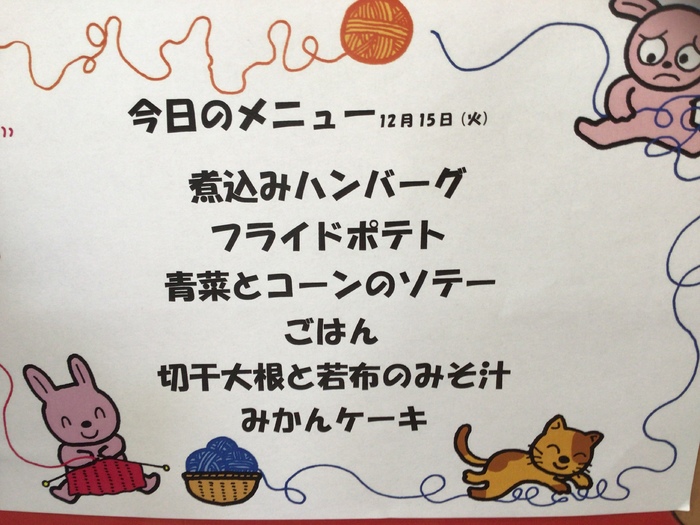 今日のメニュー12月15日（火）
煮込みハンバーグ
フライドポテト
青菜とコーンのソテー
ごはん
切干大根と若布のみそ汁
みかんケーキ